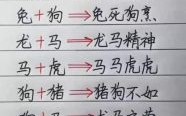 兔+狗⇒兔死狗烹
龙+马⇒龙马精神
马+虎⇒马马虎虎
狗+猪⇒猪狗不如